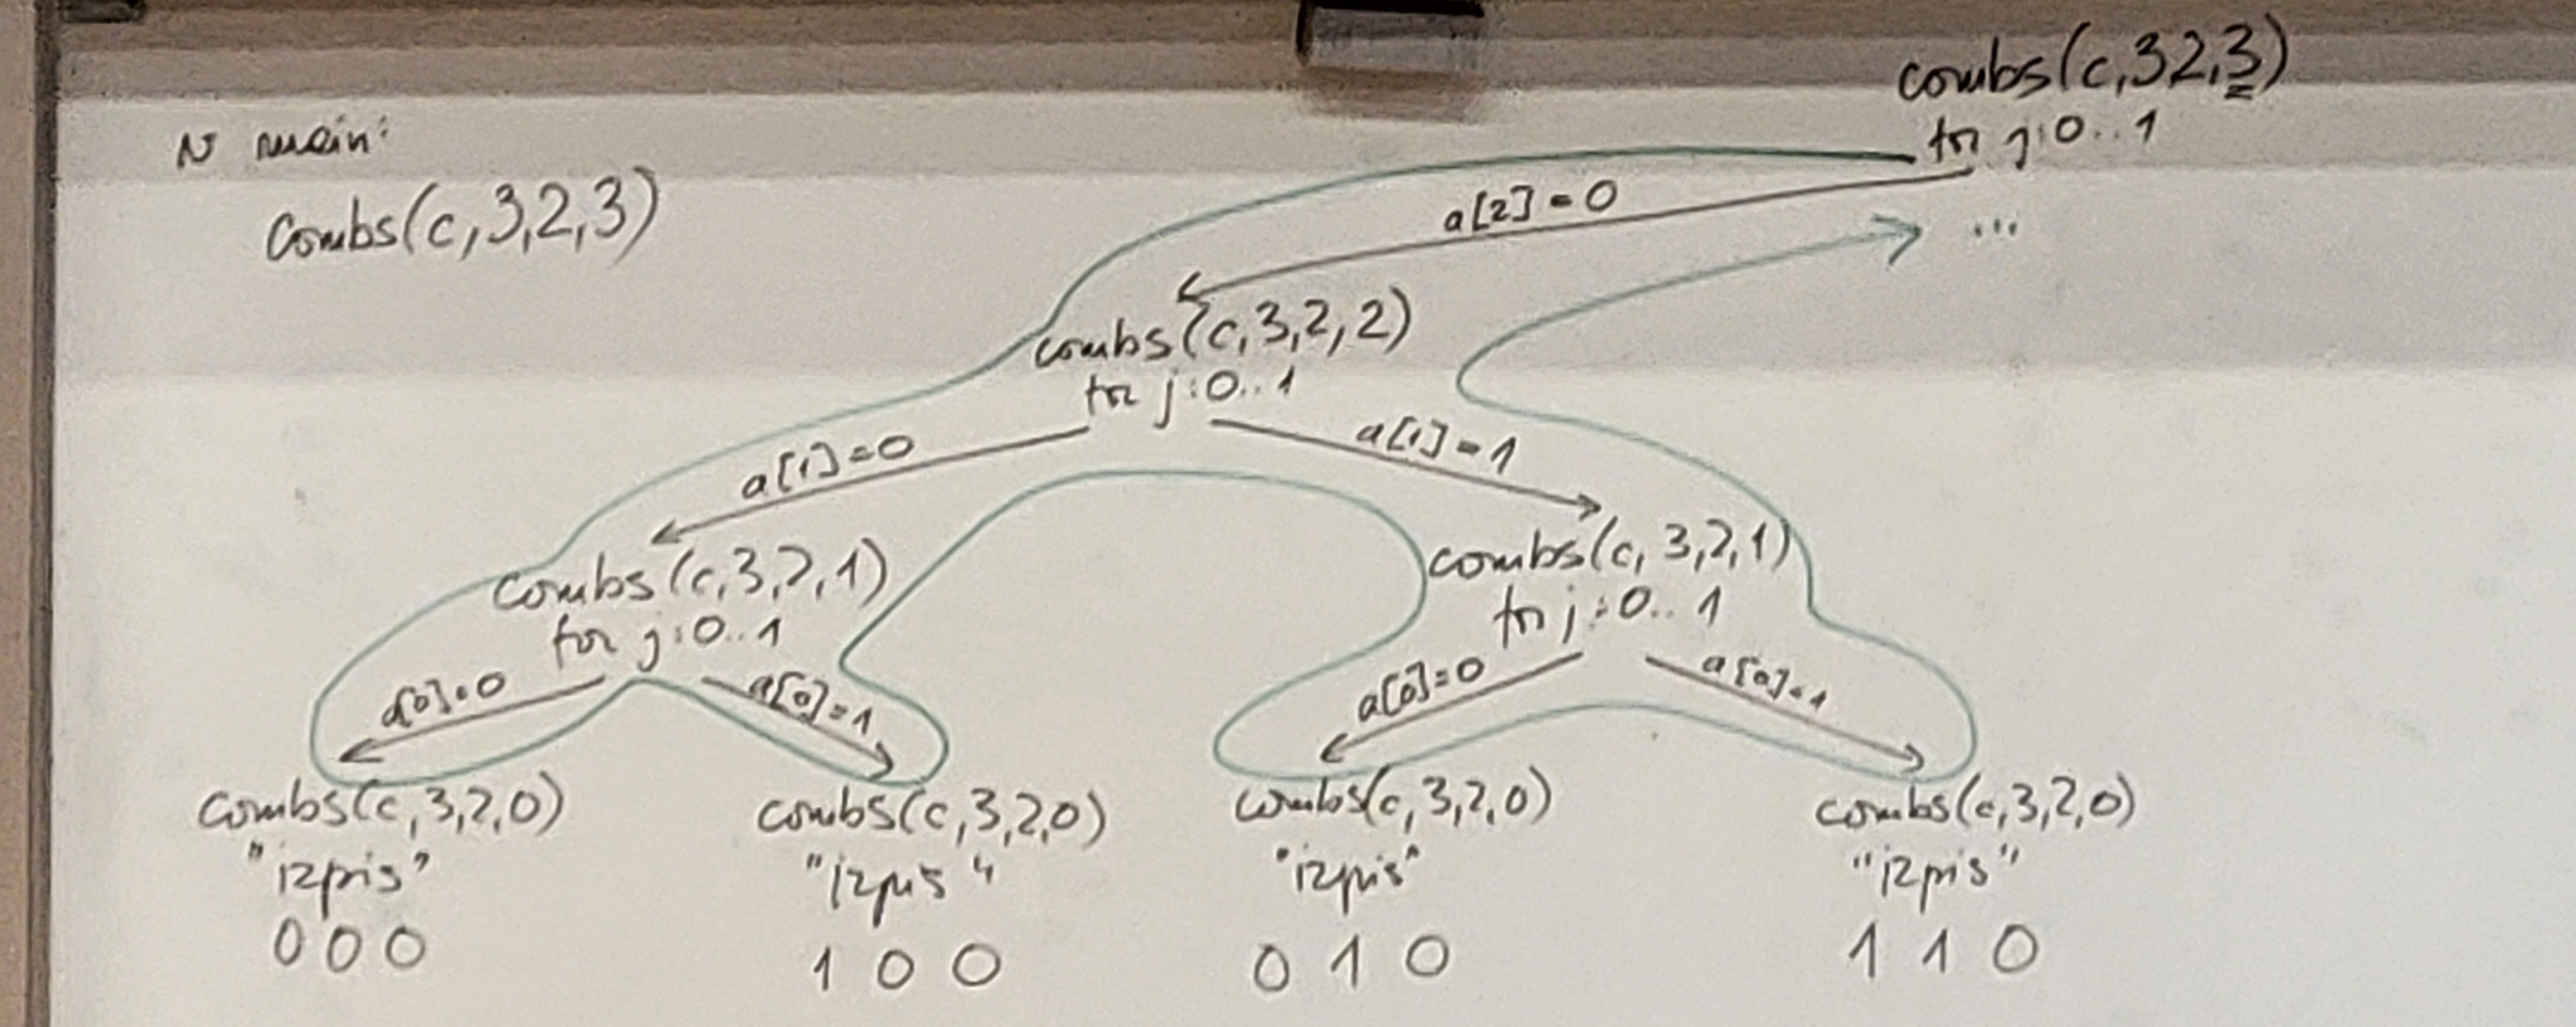 v main:
combs(c,3,2,3)
combs(c,3,2,3)
for j:0..1
a[2]=0
...
combs(c,3,2,2)
for j:0..1
a[1]=0
a[1]=1
combs(c,3,2,1)
for j:0..1
combs(c,3,2,1)
for j:0..1
a[0]=0
a[0]=1
a[0]=0
a[0]=1
combs(c,3,2,0)
"izpis"
0 0 0
combs(c,3,2,0)
"izpis"
1 0 0
combs(c,3,2,0)
"izpis"
0 1 0
combs(c,3,2,0)
"izpis"
1 1 0